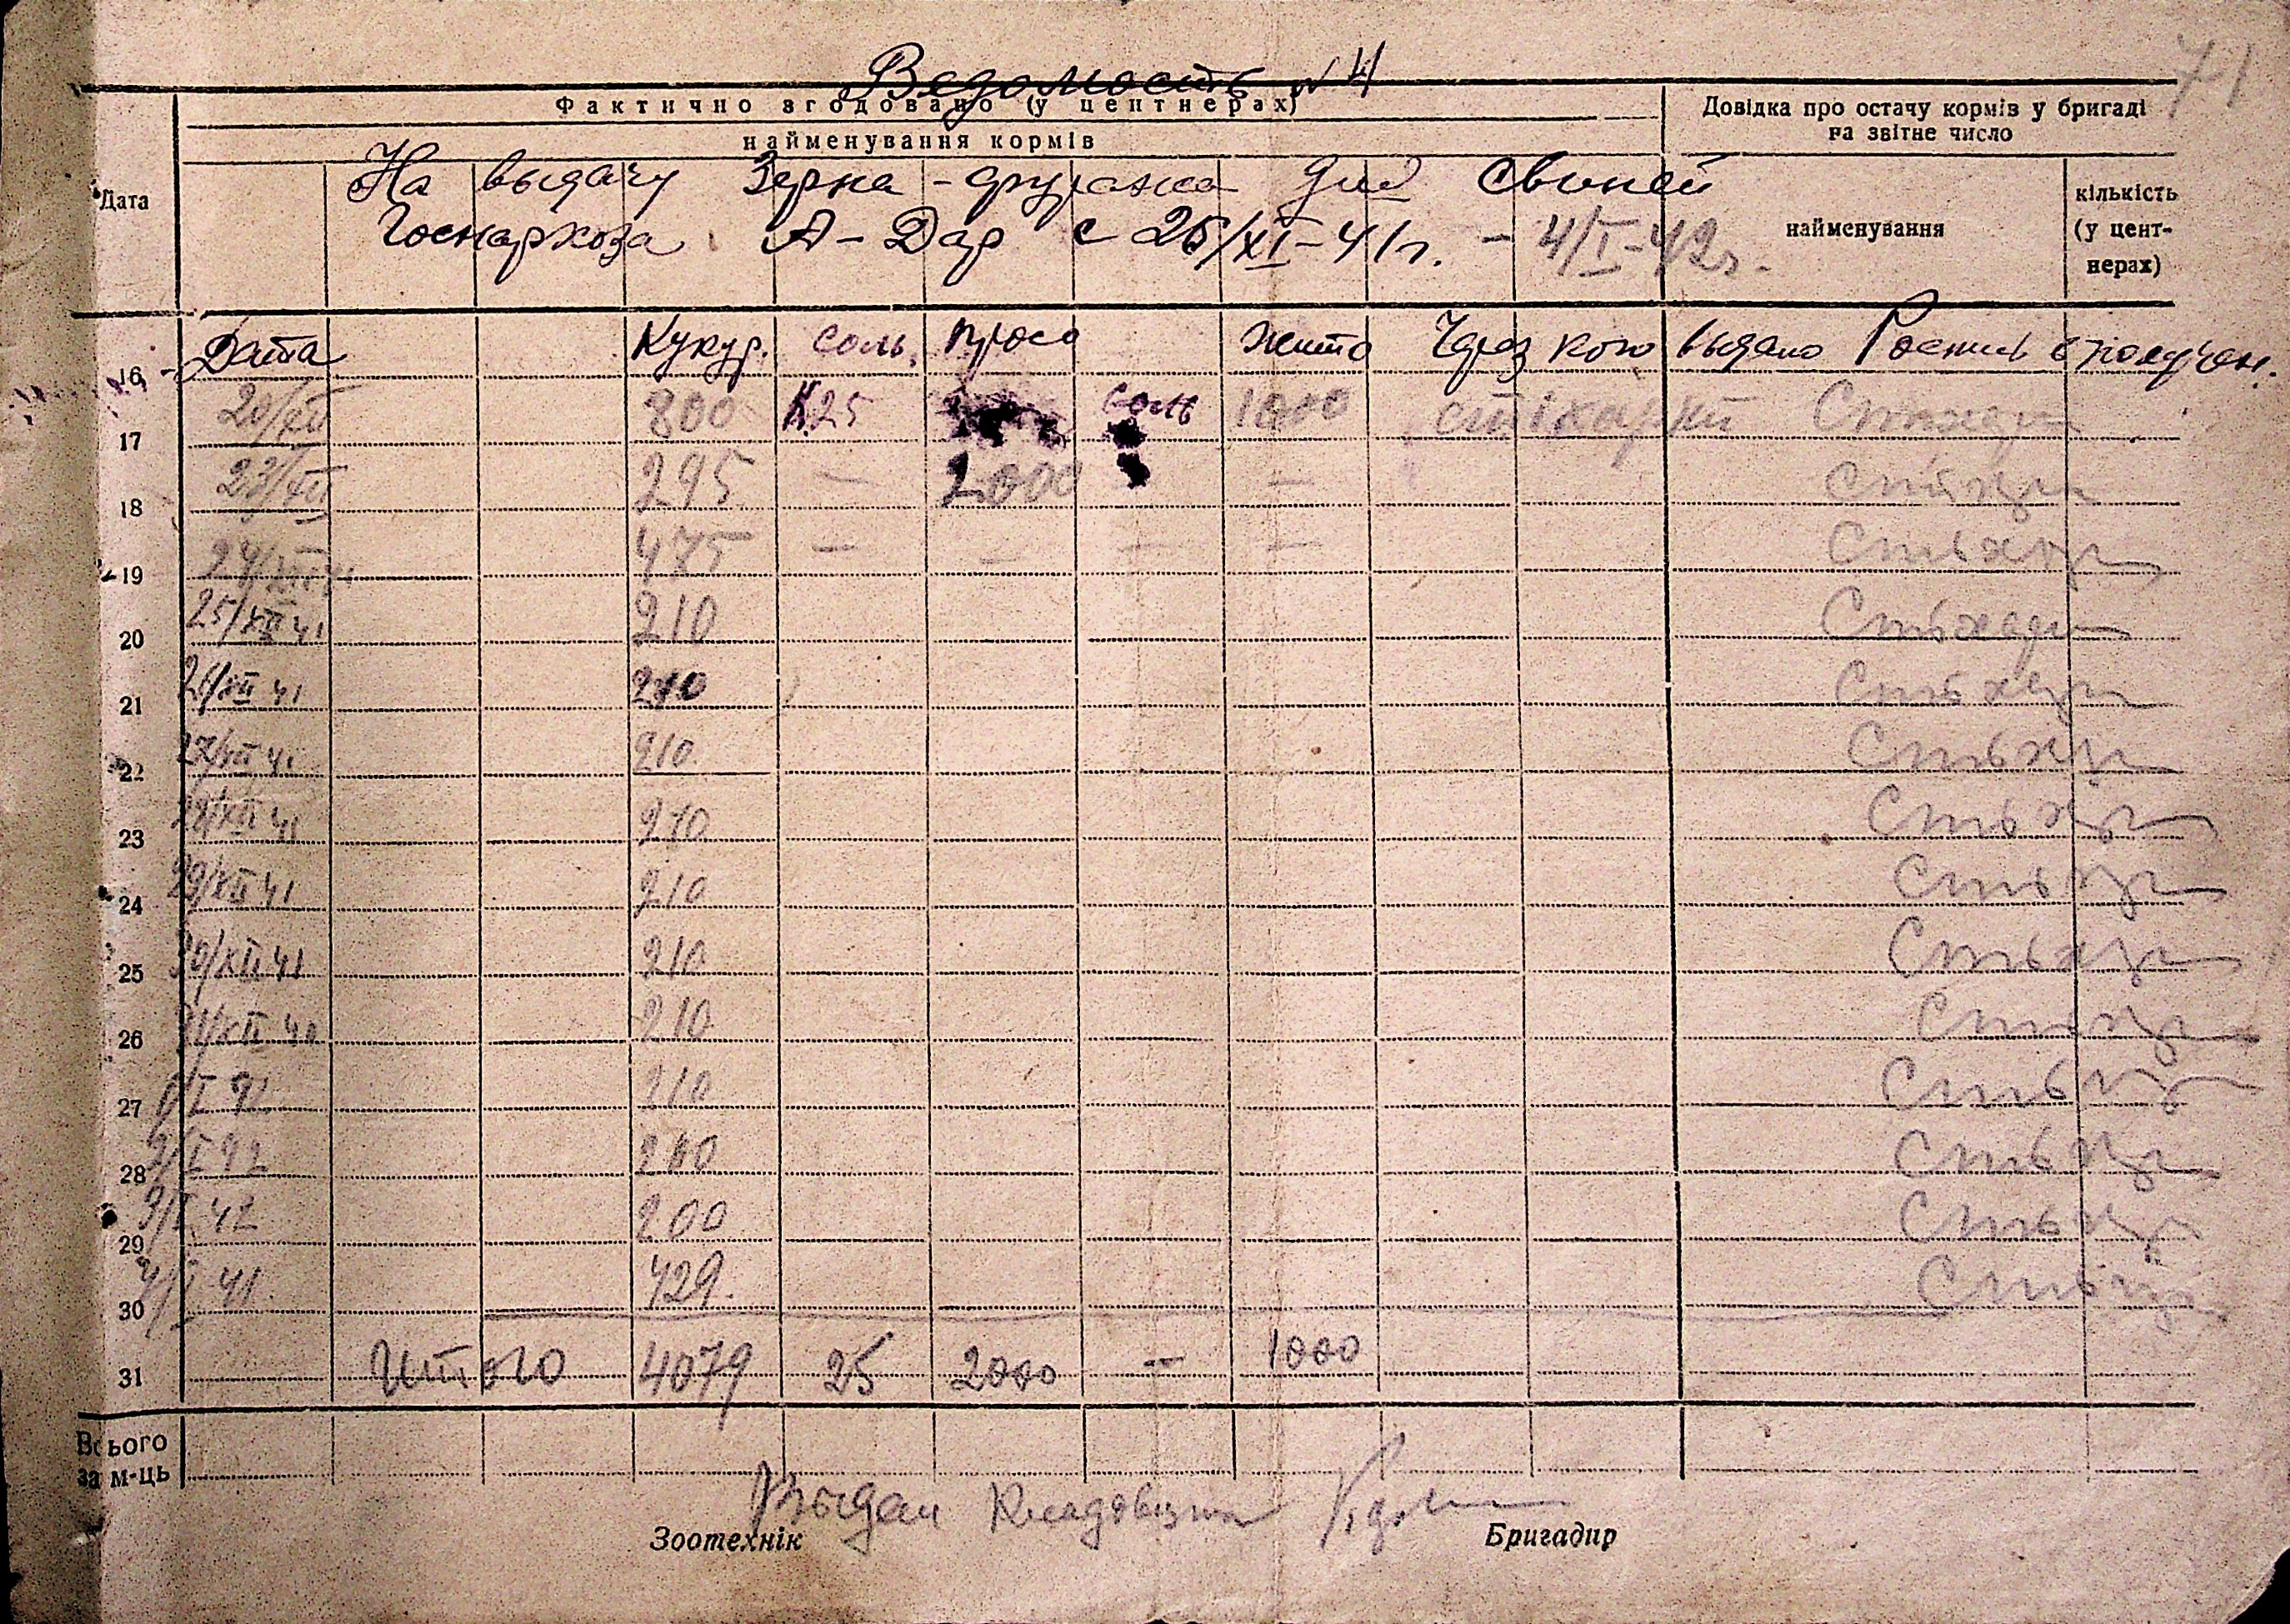 71
Ведомость № 4
Фактично згодовано (у центнерах)
Довідка про остачу кормів у бригаді
на звітне число
найменування кормів
На выдачу Зерна-фуража для Свиней
Дата
кількість
(у цент-
нерах)
найменування
Госнархоза А-Дар с 25/XI-41г. - 4/I-42г.
Дата Кукур. соль. просо жито Через кого выдано Роспись в получен.
16
20/XII 800 К.25 соль 1000
17
23/XII 295 — 2000 —
18
24/XII 475 — — — —
19
25/XII 41 210
20
26/XII 41 210
21
27/XII 41 210
22
28/XII 41 210
23
29/XII 41 210
24
30/XII 41 210
25
31/XII 210
26
1/I 210
27
2/I 42 210
28
3/I 42 200
29
4/I 41 429.
30
Итого 4079 25 2000 — 1000
31
Всього
за м-ць
Выдал Кладовщик
Зоотехнік Бригадир